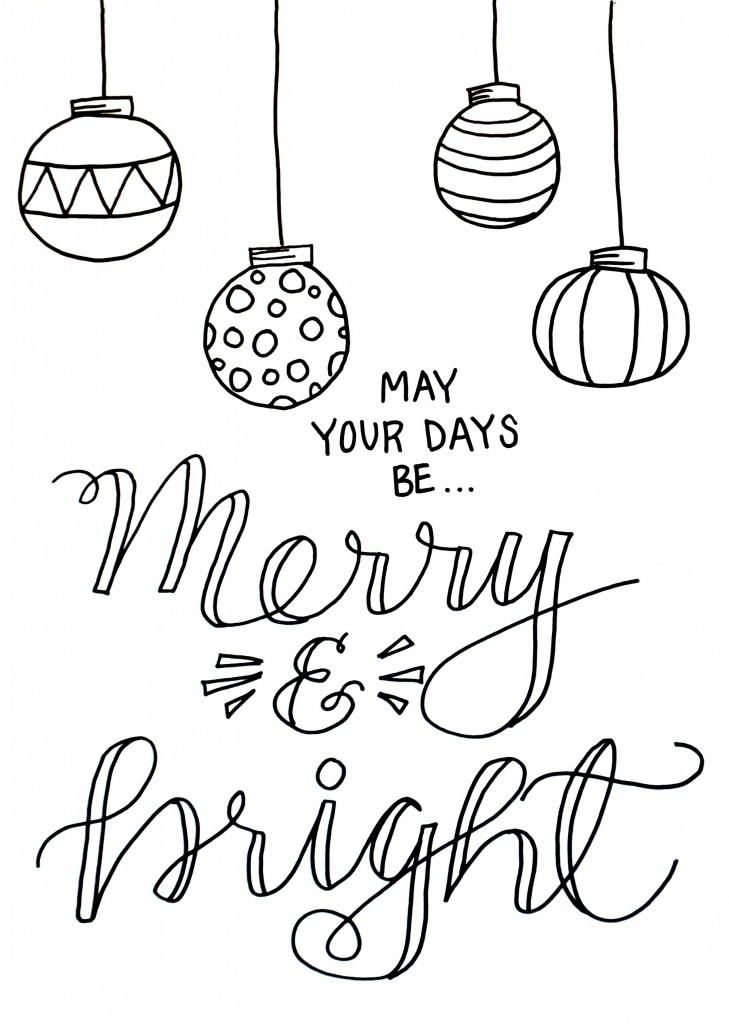 MAY
YOUR DAYS
BE...
Merry
&
bright